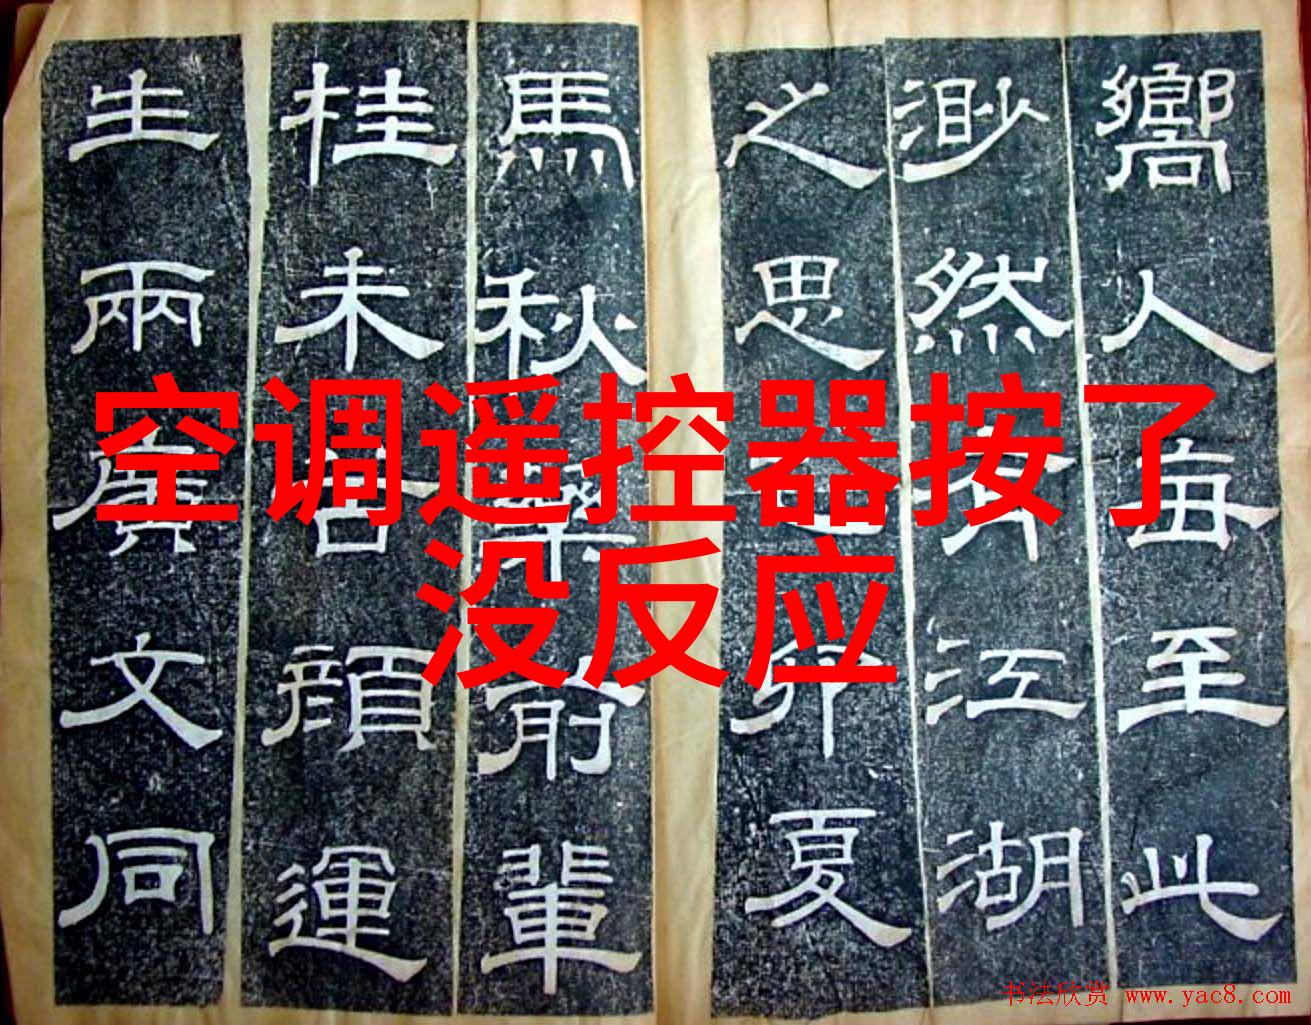 空调遥控器按了
没反应
嚮人每至此
渺然有江湖
之思卯夏
馬秋藥前輩
桂未谷顏運
生兩廣文同
书法欣赏 www.yac8.com